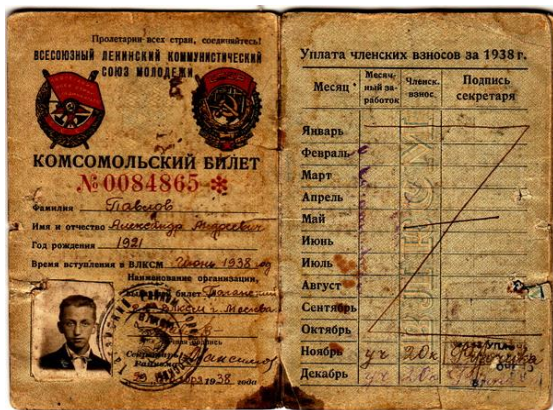 Пролетарии всех стран, соединяйтесь!
ВСЕСОЮЗНЫЙ ЛЕНИНСКИЙ КОММУНИСТИЧЕСКИЙ
СОЮЗ МОЛОДЕЖИ
КОМСОМОЛЬСКИЙ БИЛЕТ
№ 0084865 *
Фамилия Павлов
Имя и отчество Александр
Год рождения 1921
Время вступления в ВЛКСМ Июнь 1938 год
Наименование организации,
билет Таганский
ВЛКСМ г. Москва
подпись
1938 года
Уплата членских взносов за 1938 г.
Месяц
Месяч-
ный за-
работок
Членск.
взнос
Подпись
секретаря
Январь
Февраль
Март
Апрель
Май
Июнь
Июль
Август
Сентябрь
Октябрь
Ноябрь уч 20к
Декабрь уч 20к